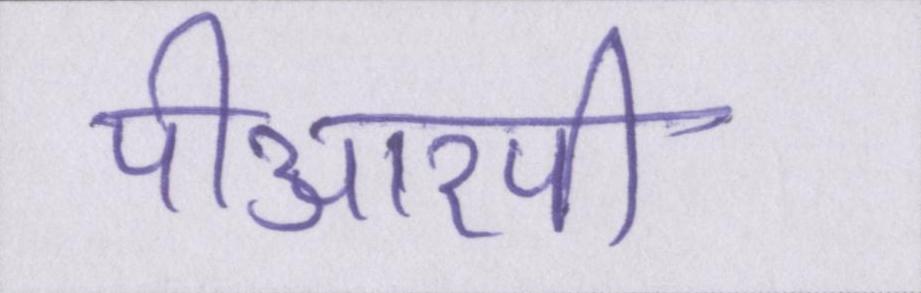 पीआरपी